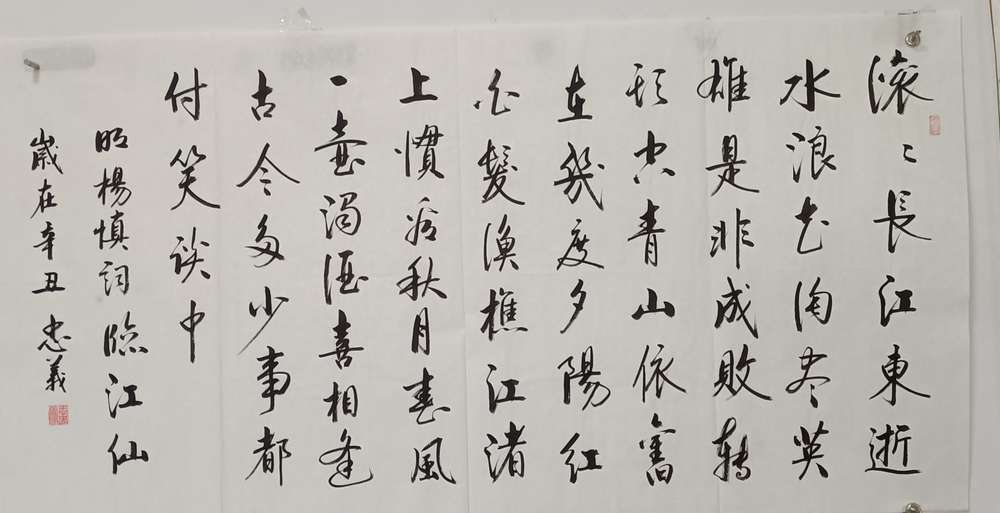 滚〻長江東逝
水浪花淘尽英
雄是非成敗轉
头空青山依舊
在幾度夕陽红
白髮漁樵江渚
上慣看秋月春風
一壺濁酒喜相逢
古今多少事都
付笑谈中
明楊慎詞臨江仙
歲在辛丑 忠義